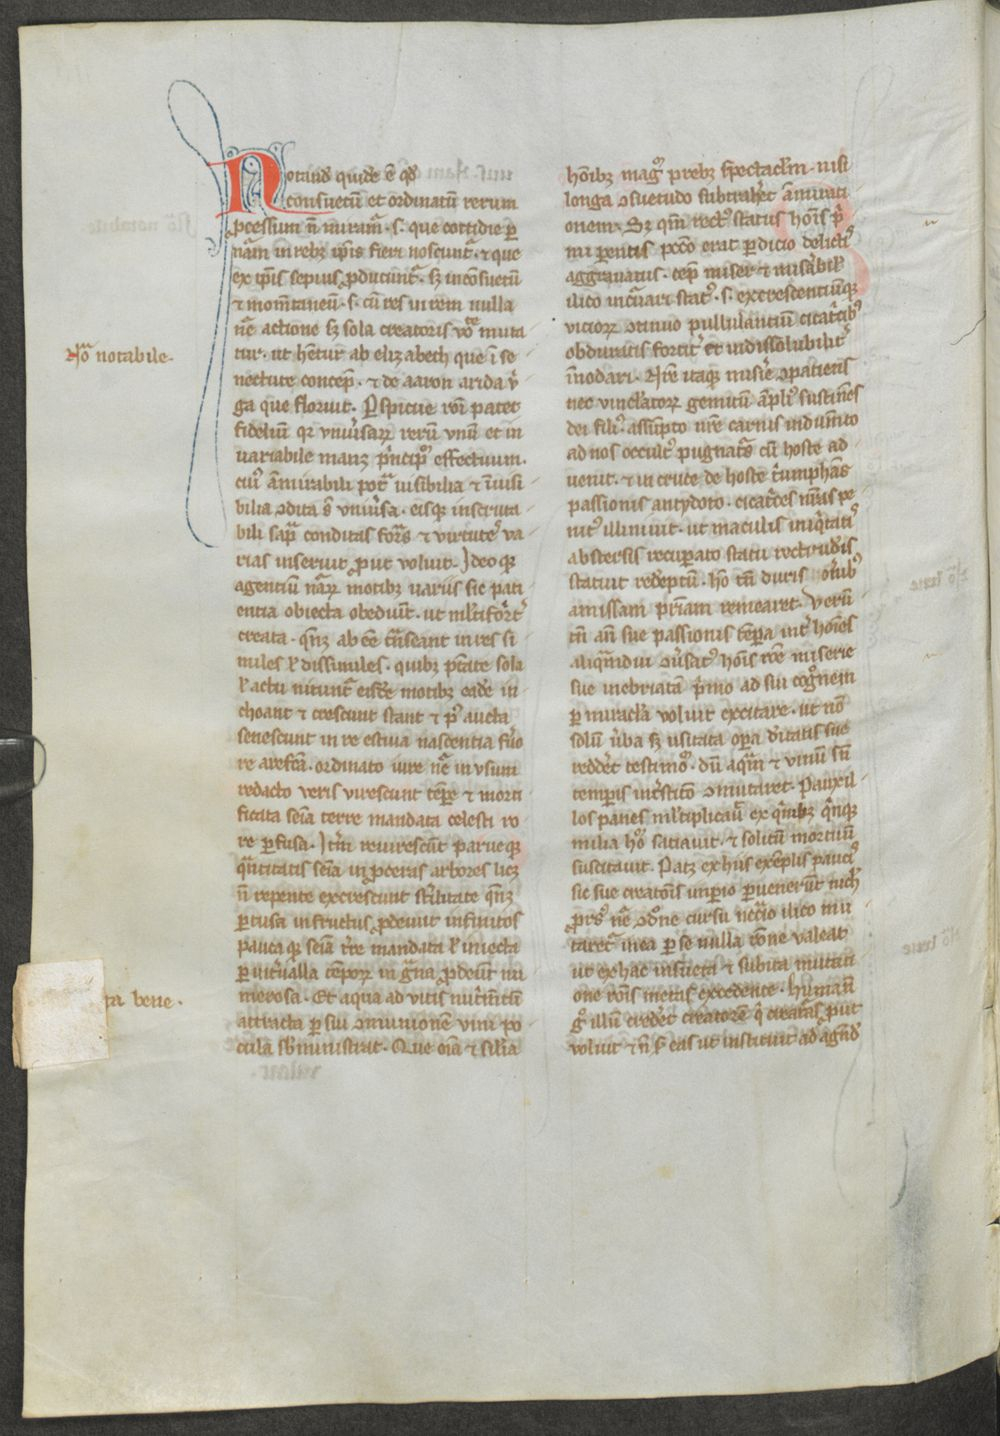 Notand quidē ē qd
consuetū et ordinatū rerum
pcessum n̄ miram̄ . s . que cottidie p
nām in rebꝫ ip̄is fieri noscunt̄ . ⁊ que
ex ip̄is sepius ꝓducunt̄ . sꝫ inconsuetū
⁊ momētaneū . s . cū res in rem nulla
nē actione sꝫ sola creatoris volūtate muta
tur . ut hētur ab elizabech que ī se
nectute concep̄ . ⁊ de aaron arida v̓
ga que floruit . Pspicue rōi patet
fidelium qr vniūsarꝝ rerū vnū et in
uariabile manꝫ p̄ncipꝰ effectuum .
cuiꝰ āmirabili pot̄ iuisibilia ⁊ īuisi
bilia ꝯdita s̄ vniūsa . eisqꝫ inscruta
bili sap̄ conditas for̄s ⁊ virtuteꝭ va
rias inseruit ꝓut voluit . Ideo qꝫ
agentiū nārꝝ motibꝫ variis sic pati
entia obiecta obediūt . ut ml̓tifor̄t̓
creata . qn̄ꝫ ab eē t̄nseant in res si
miles l̓ dissimiles . quibꝫ p̄tate sola
l̓ actu nitunt̄ eisdē motibꝫ eadē in
choant ⁊ crescunt stant ⁊ pꝰ aucta
senescunt in re estiua nascentia fri̓o
re arescūt . ordinato iure nē in vsum
redacto veris virescunt tēpe ⁊ morti
ficata sēia terre mandata celesti ro
re pfusa . Itm̄ reuirescūt parue qꝫ
quātitatis sēia in ꝓceras arbores licꝫ
n̄ repente excrescunt st̓ilitate qn̄ꝫ
ptusa in fructus ꝓdeūt infinitos
pauca qꝫ sēia t̓re mandata l̓ iniecta
p int̓ualla tēporꝝ in g̓na ꝓdeūt nu
merosa . Et aqua ad vitis nut̓imētū
attracta p sui ꝯmunionē vini po
cula sbministrat . Que oīa ⁊ sil̓ia
hōibꝫ magꝰ prebꝫ spectacl̓m . nisi
longa ꝯsuetudo subtrah̓et āmirati
onem . Sꝫ qm̄ rectꝰ status hōis p̓
mi parentis pccō erat pditio delictꝭ
aggrauatus . cep̄ miser ⁊ mis̓abil̓
ilico incūari statꝰ . s . excrescentiūqꝫ
viciorꝝ ꝯtinuo pullulantiū cicat̓cibꝰ
obduratis fortit̓ et indissolubilit̓
īnodari . Nr̄e itaqꝫ mis̓ie ꝯpatiens
nec vinclatorꝝ gemitū āpliꝰ sustinēs
dei filiꝰ assūpto nr̄e carnis indumēto
ad nos occultꝰ pugnat̓s cū hoste ad
uenit . ⁊ in cruce de hoste t̓umphās
passionis antydoto . cicat̓ces nr̄as pe
nitꝰ illiniuit . ut maculis iniq̓tatꝭ
abstersis recupato statu rectitudīs
statuit redēptū .
amissam pr̄iam remearet . Verū
tn̄ an̄ sue passionis tēpa int̓ hoīes
aliquādiu ꝯūsatꝰ hoīs rōē miserie
sue inebriatā p̓mo ad sui cogꝰnem
p miracl̓a voluit excitare . ut nō
solū v̓ba sꝫ usitata opa d̓itatis sue
redd̓et testimoꝰ . dū aquā ⁊ vinū sn̄
temporis int̓sticō ꝯmutaret . Pauxil
los panes ml̓tiplicauit ex qꝰbꝫ q̓nqꝫ
milia hōꝝ satiauit . ⁊ solitū mortuū
suscitauit . Patꝫ ex hiis exēplis paucꝭ
sic sue creatōis impio puenerūt nich̓
ꝓrsꝰ nē ꝯdōne cursu nec̓io ilico mu
taret̄ in ea p se nulla rōne valeat
ut ex hac insueta ⁊ subita mutati
one rōis metas excedente . humanū
gꝰ illum cred̓et creatorē q̓ creat̓as ꝓut
voluit ⁊ n̄ l̓ eas ut instituit ad agnꝰd
Nō notabile .
ta bene .